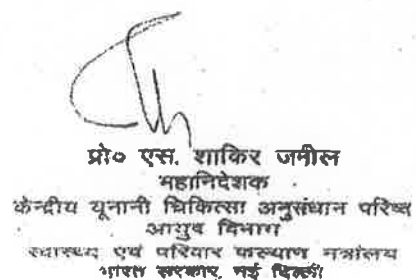 प्रो० एस. शाकिर जमील
महानिदेशक
केन्द्रीय यूनानी चिकित्सा अनुसंधान परिषद
आयुष विभाग
स्वास्थ्य एवं परिवार कल्याण मंत्रालय
भारत सरकार, नई दिल्ली